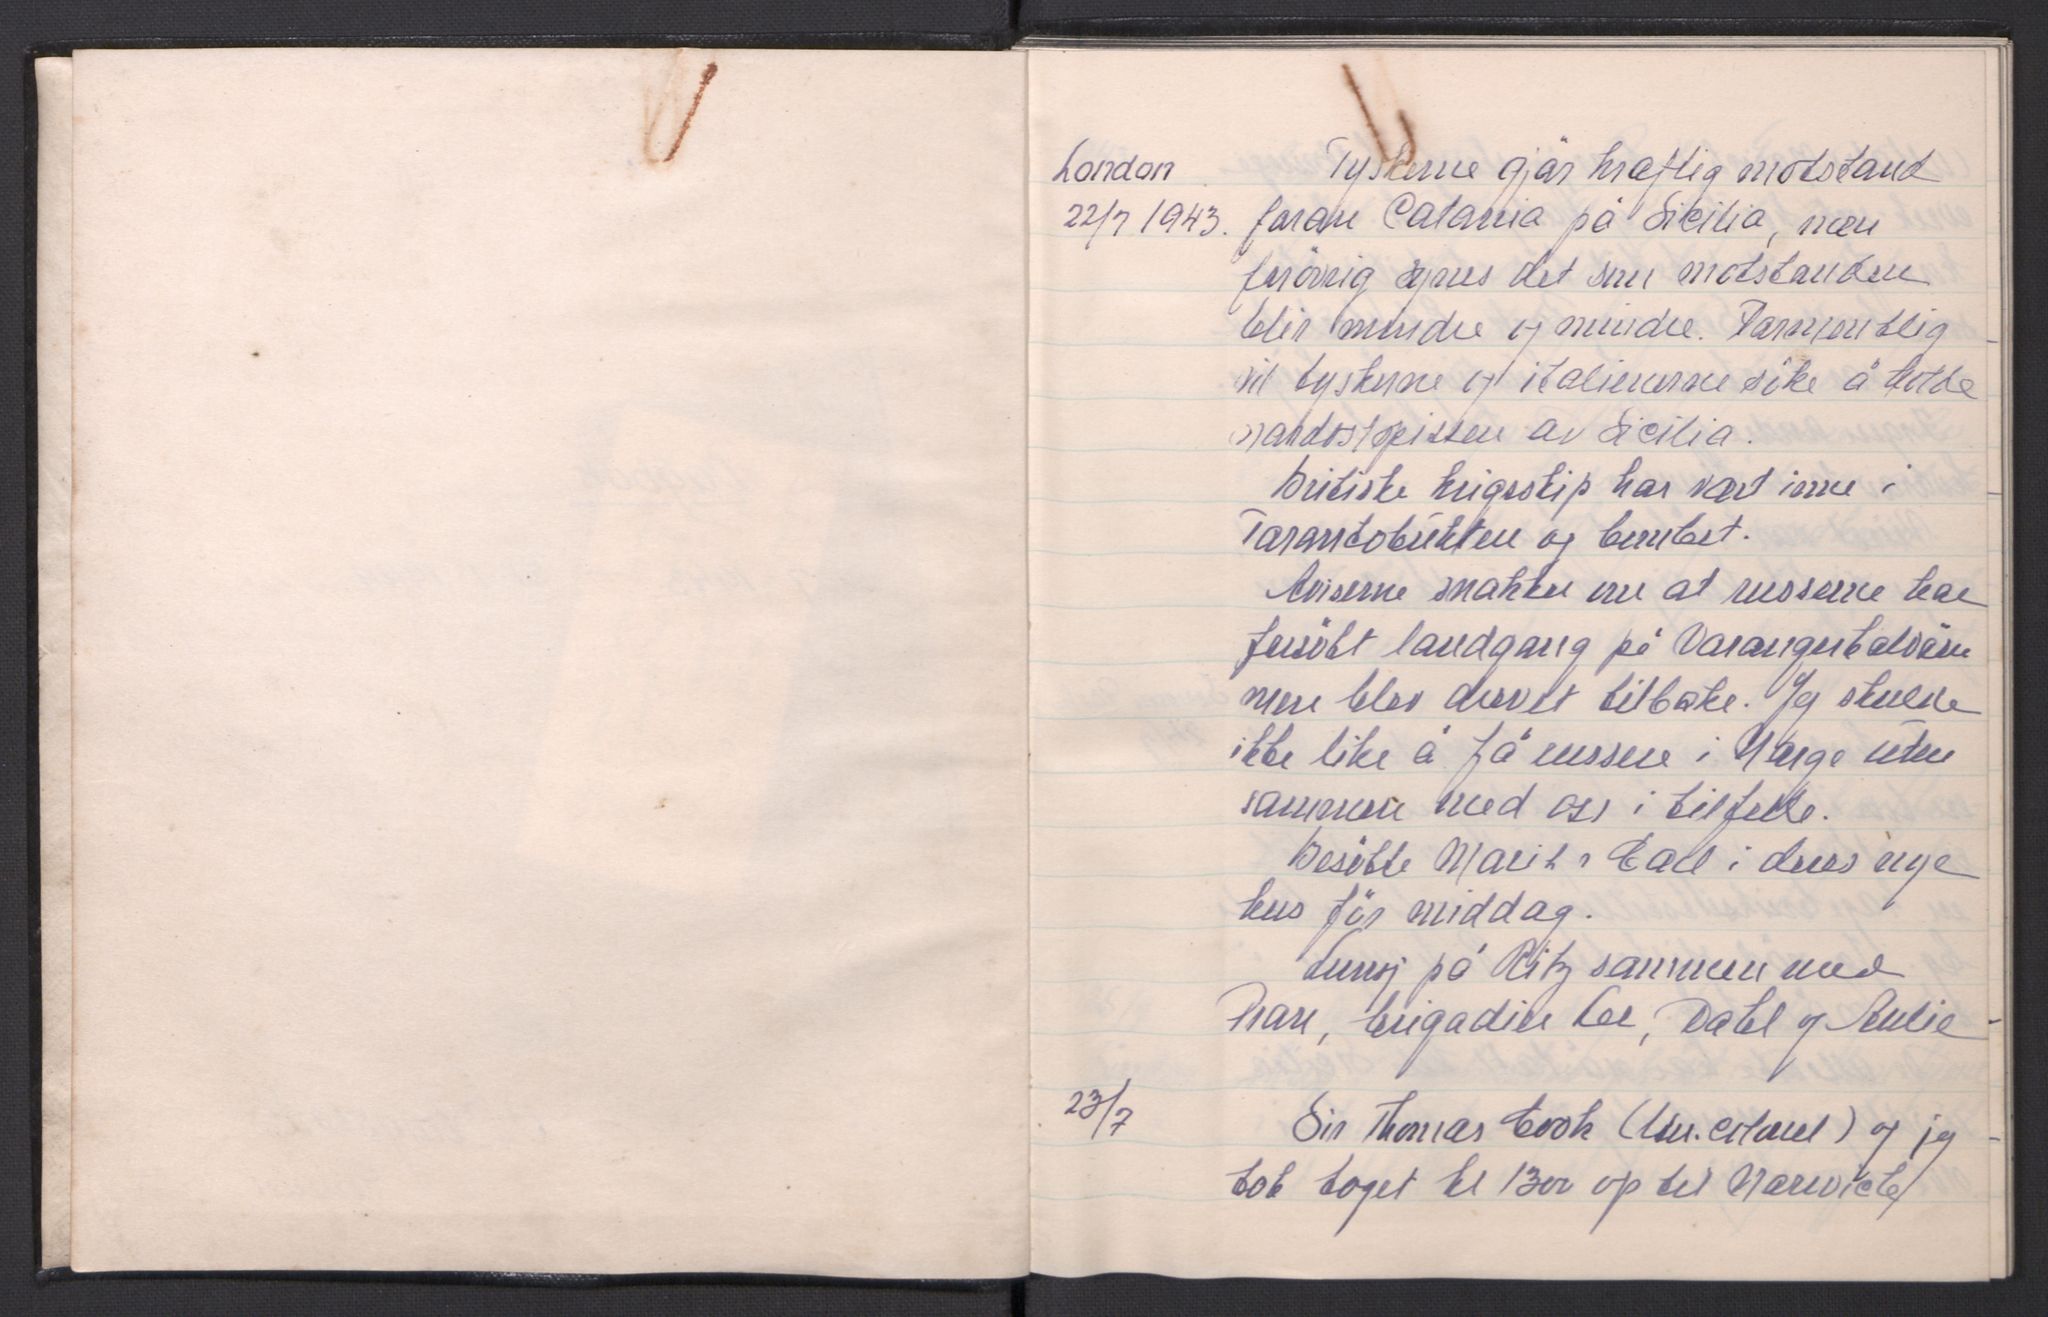 London
22/7 1943.
Tyskerne gjör kraftig motstand
foran Catania på Sicilia, men
forövrig synes det som motstanden
blir mindre og mindre. Formentlig
vil tyskerne og italienerne söke å holde
nordostspissen av Sicilia.
Britiske krigsskip har vært inne i
Tarantobukten og bombet.
Aviserne snakker om at russerne har
forsökt landgang på Varangerhalvöen
men blev drevet tilbake. Jeg skulde
ikke like å få russere i Norge uten
sammen med oss i tilfelle.
Besökte Marit & Carl i deres nye
hus för middag.
Lunsj på Ritz sammen med
brigadier Lee, Dahl og
23/7
Sir Thomas Cook og jeg
tok toget kl 1300 op til Norwich